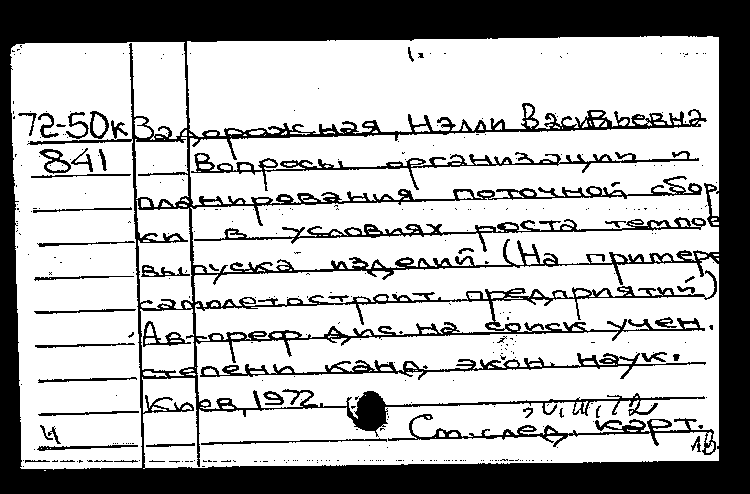 72-50к Задорожная, Нэлли Васильевна
841 Вопросы организации и
планирования поточной сбор
ки в условиях роста темпов
выпуска изделий. (На примере
самолетостроит. предприятий)
Автореф. дис. на соиск. учен.
степени канд. экон. наук.
Киев, 1972.
30.III.72
Ч См. след. карт.